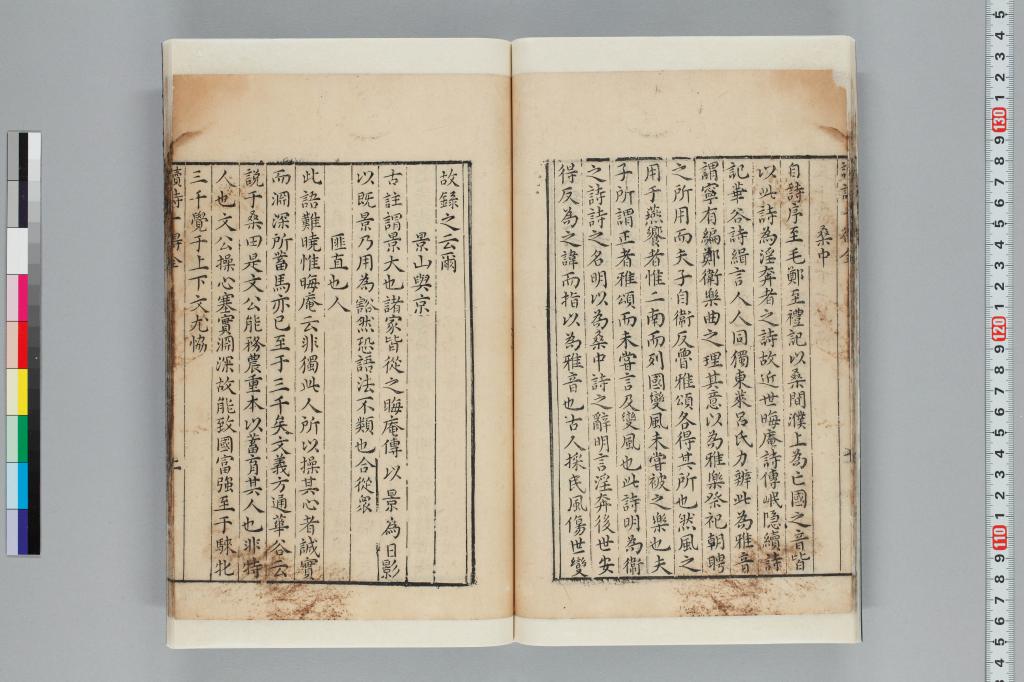 桑中
自詩序至毛鄭至禮記以桑間濮上為亡國之音皆
以此詩為淫奔者之詩故近世晦庵詩傳岷隱續詩
記華谷詩緝言人人同獨東萊呂氏力辨此為雅音
謂寧有編鄭衛樂曲之理其意以為雅樂祭祀朝聘
之所用而夫子自衛反魯雅頌各得其所也然風之
用于燕饗者惟二南而列國變風未嘗被之樂也夫
子所謂正者雅頌而未嘗言及變風也此詩明為衛
之詩詩之名明以為桑中詩之辭明言淫奔後世安
得反為之諱而指以為雅音也古人採民風傷世變
故錄之云爾
景山與京
古註謂景大也諸家皆從之晦庵傳以景為日影
以既景乃用為豁然恐語法不類也合從衆
匪直也人
此語難曉惟晦庵云非獨此人所以操其心者誠實
而淵深所畜馬亦已至于三千矣文義方通華谷云
說于桑田是文公能務農重本以蓄育其人也非特
人也文公操心塞實淵深故能致國富強至于騋牝
三千覺于上下文尤恊
讀詩一得全